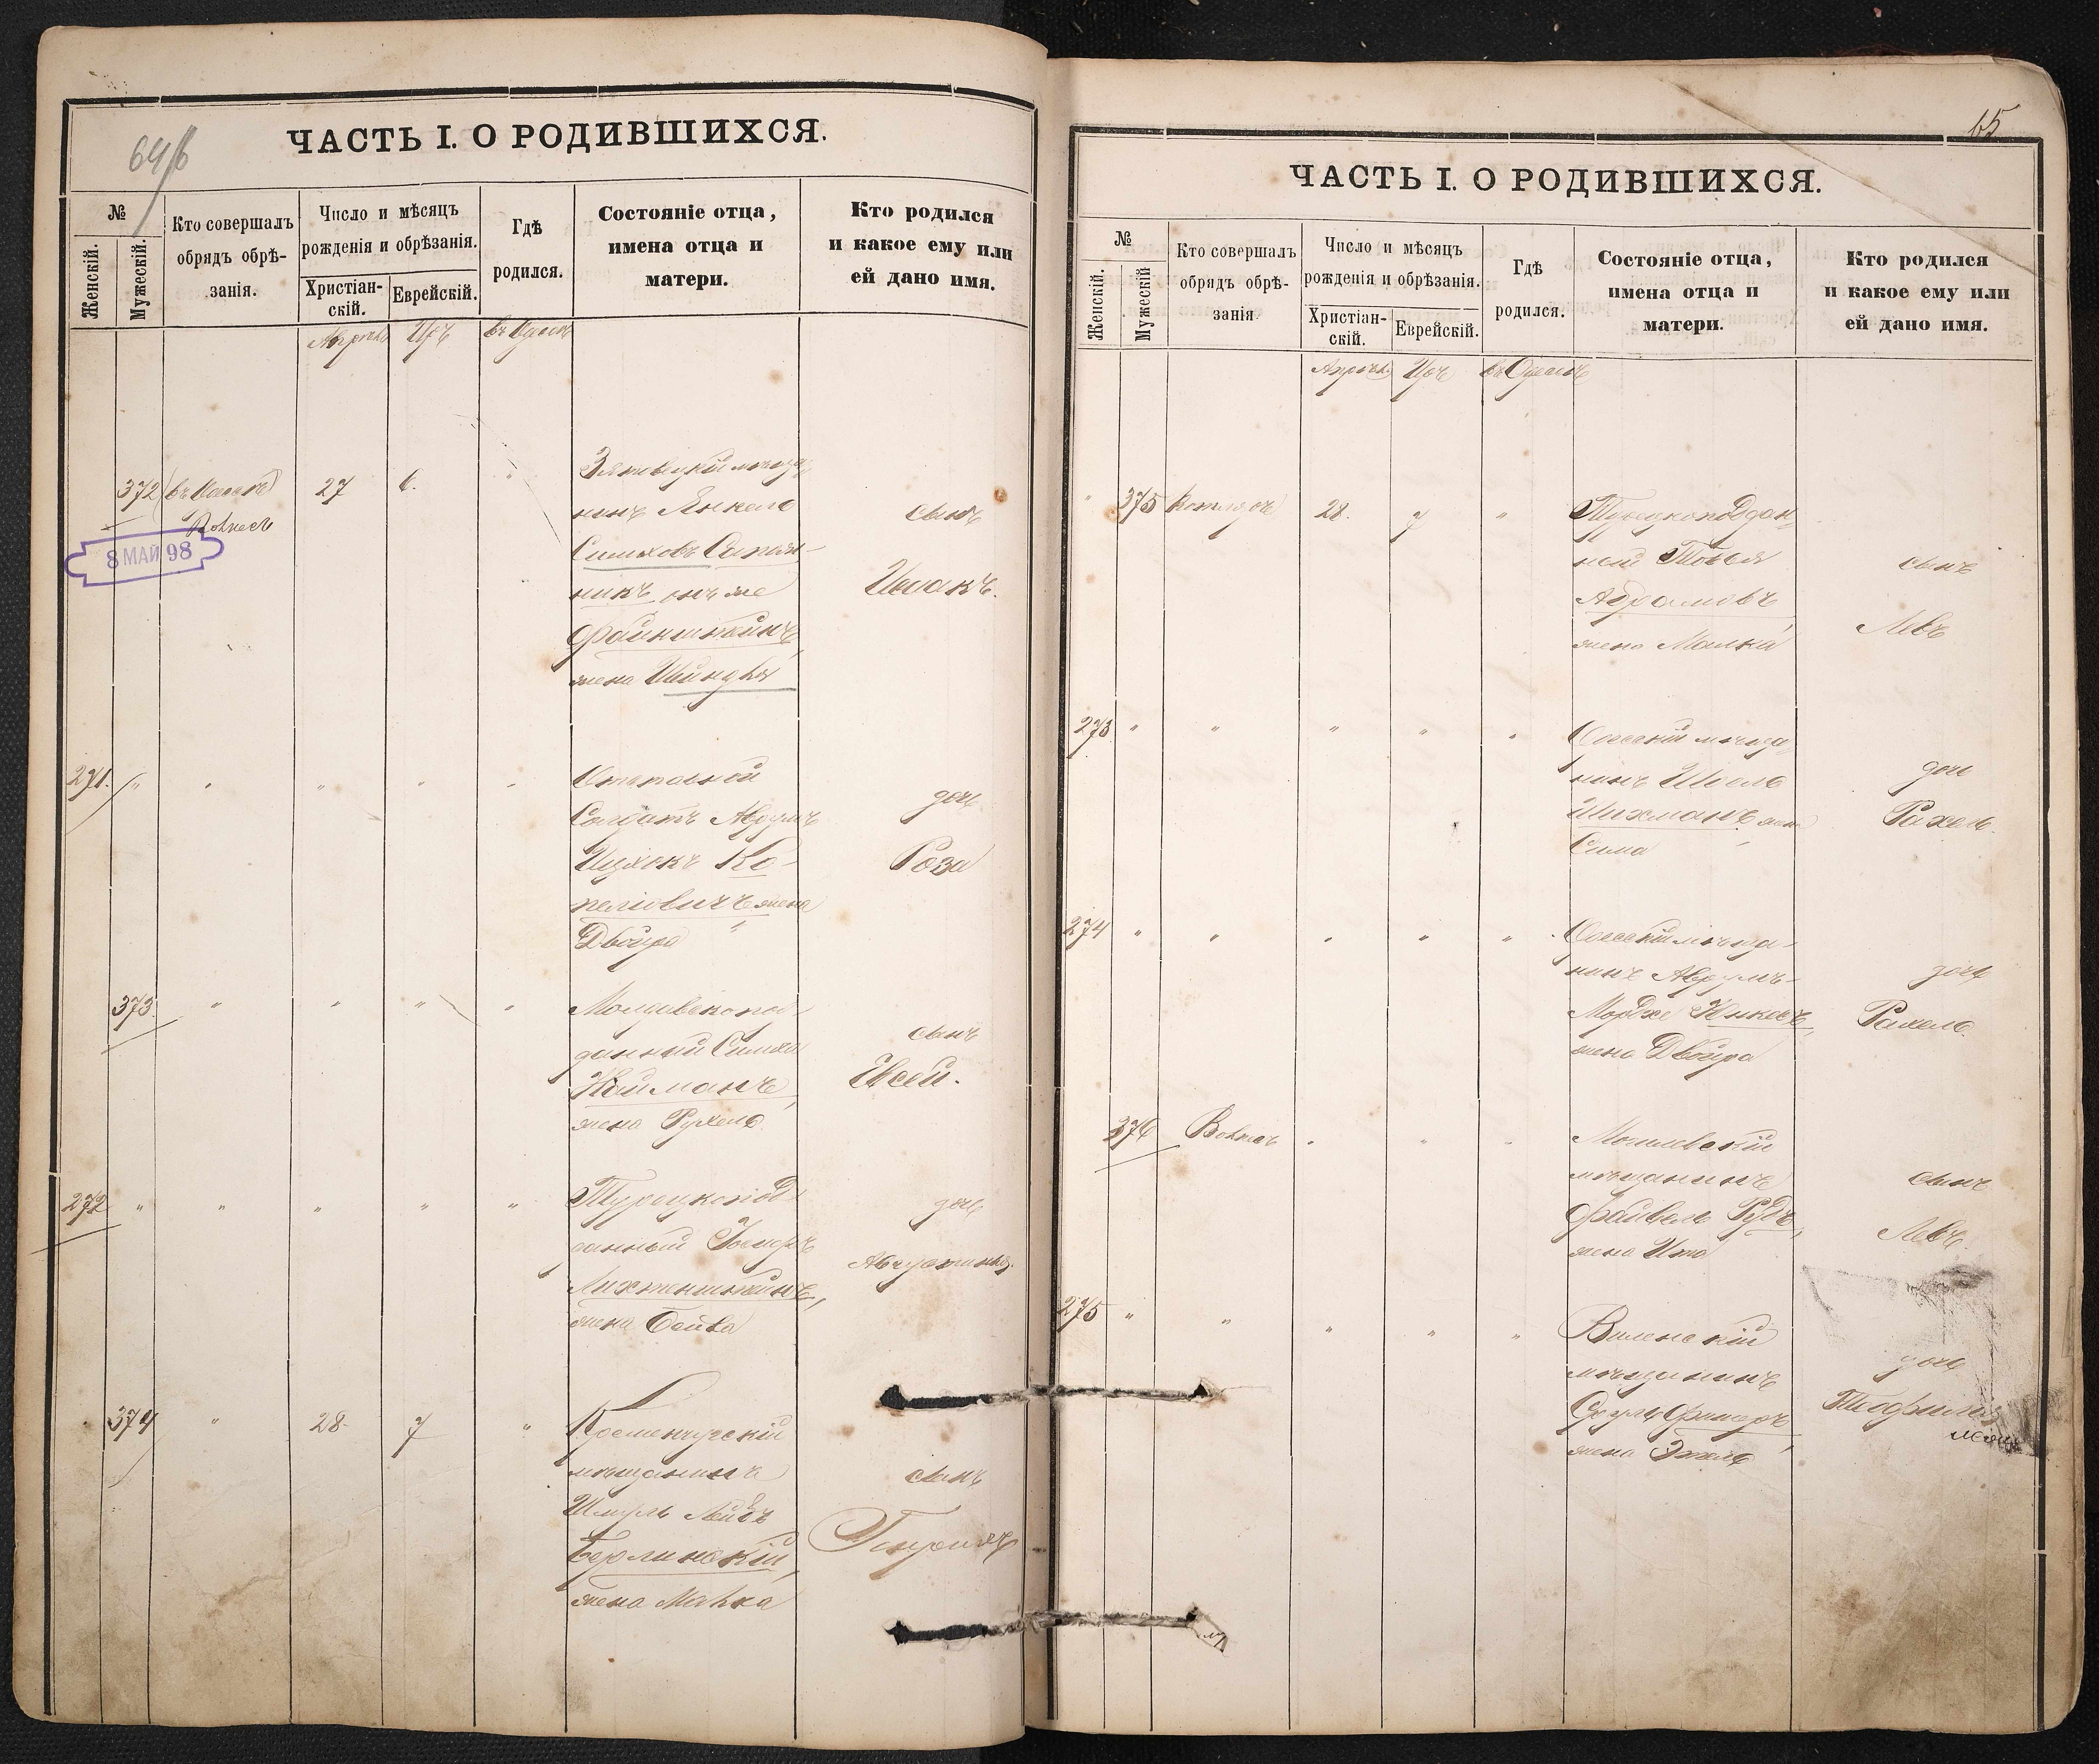 64/б
ЧАСТЬ I. О РОДИВШИХСЯ.
№
Женскій.
Мужескій.
Кто совершалъ
обрядъ обрѣ-
занія.
Число и мѣсяцъ
рожденія и обрѣзанія.
Христіан-
скій.
Еврейскій.
Гдѣ
родился.
Состояніе отца,
имена отца и
матери.
Кто родился
и какое ему или
ей дано имя.
Апрѣль Іръ въ Одессѣ
372 27 6. "
8 МАЙ 98
нинъ Янкель
Симховъ Сапож-
никъ онъ же
Файнштейнъ,
жена Шейндля
сынъ
Исаакъ.
271. " " " " "
Солдатъ Аврумъ
Ицхокъ Ко-
пеліовичъ жена
Двойра
дочь
Роза
373 " " " "
Молдавскопод-
данный Симха
Нейманъ,
жена Рухель
сынъ
Евсей.
272 " " " " "
Турецкопод-
данный
Лихтенштейнъ,
жена Бейла
дочь
Августина.
374 " 28. 7 "
Кременчугскій
мѣщанинъ
Шмуль Лейбъ
Берлинскій,
жена Малка
сынъ
Генрихъ
65
ЧАСТЬ I. О РОДИВШИХСЯ.
№
Женскій.
Мужескій
Кто совершалъ
обрядъ обрѣ-
занія
Число и мѣсяцъ
рожденія и обрѣзанія.
Христіан-
скій.
Еврейскій.
Гдѣ
родился.
Состояніе отца,
имена отца и
матери.
Кто родился
и какое ему или
ей дано имя.
Апрѣль Іръ въ Одессѣ
" 375 28. 7 "
Турецкоподдан-
ный Товья
Абрамовъ
жена Малка
сынъ
Левъ
273 " " " " "
Одесскій мѣща-
нинъ Шоель
Шихманъ жена
Сима
дочь
Рахель.
274 " " " " "
Одесскій мѣща-
нинъ Аврумъ-
Мордхе Юнкесъ,
жена Двойра
дочь
Рахель
376 " " "
Могилевскій
мѣщанинъ
Файвель Рудъ,
жена Ита
сынъ
Левъ.
275 " " " " "
Виленскій
мѣщанинъ
Сруль Фишеръ,
жена Этель
дочь
Теофилія